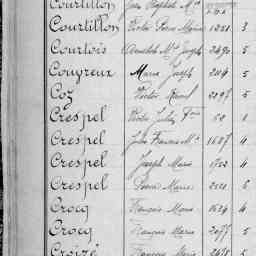 Courtillon Jean Baptiste Mie
Courtillon Victor Pierre Marie 1221 3
Courtois Mie 2490 5
Cougreux Marie Joseph 2114 5
Coz Victor 2297 5
Crespel Victor Jules 59 1
Crespel Jules Francois Mie 1687 4
Crespel Joseph Marie 1722 4
Crespel Pierre Marie 2221 5
Crocq François Marie 1634 4
Crocq François Marie 2077 5
Croizé François Marie 2478 5